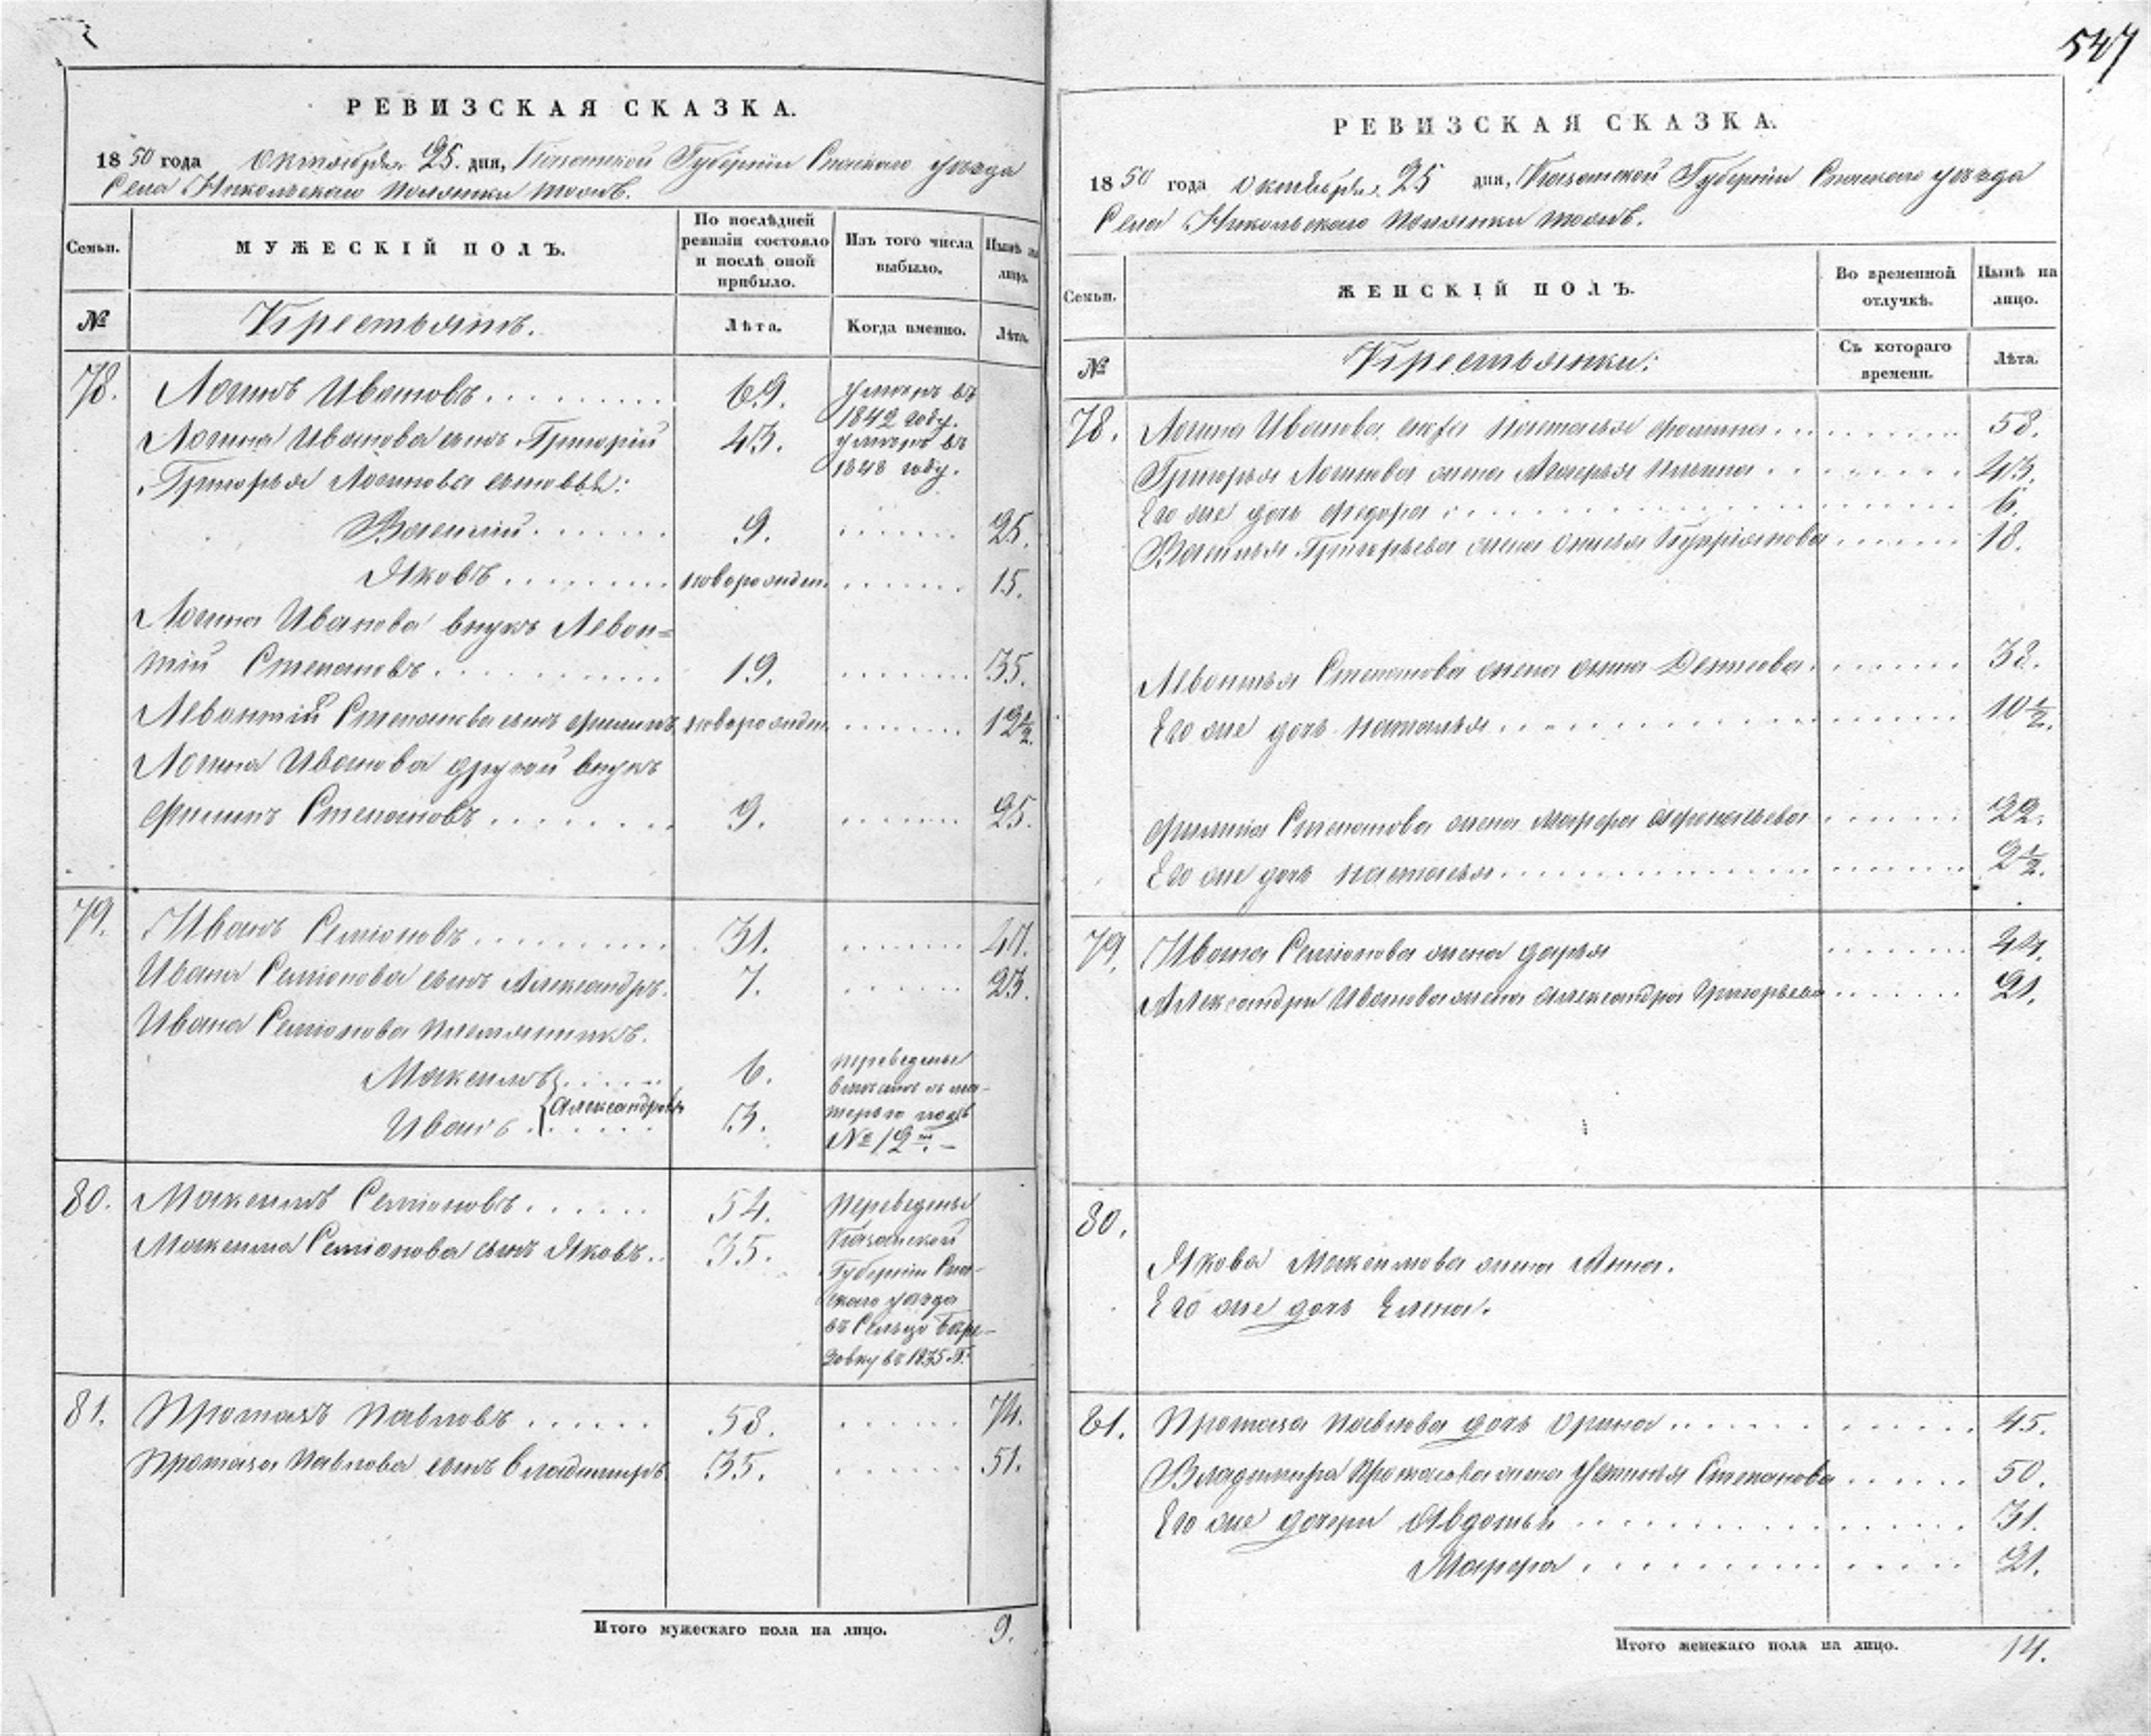 547
РЕВИЗСКАЯ СКАЗКА.
1850 года Октября 25. дня, Казанской Губернiи Спаскаго уѣзда
Села Никольскаго Полянки тожъ.
Семьи.
МУЖЕСКIЙ ПОЛЪ.
По послѣдней ревизiи состояло и послѣ оной прибыло.
Изъ того числа выбыло.
Нынѣ на лицо.
№
Крестьянъ.
Лѣта.
Когда именно.
Лѣта.
78. Логинъ Ивановъ 69. умеръ въ 1842 году.
Логина Иванова сынъ Григорiй 43. умеръ въ 1848 году.
Григорья Логинова сыновья:
Василiй 9. 25.
Яковъ новорожден. 15.
Логина Иванова внукъ Левон=
тiй Степановъ 19. 35.
Левонтiй Степанова сынъ Филипъ новорожден. 12½.
Логина Иванова другой внукъ
Филипъ Степановъ 9. 25.
79. Иванъ Семiоновъ 31. 47.
Ивана Семiонова сынъ Александръ. 7. 23.
Ивана Семiонова племянники.
Максимъ 6. переведены
Иванъ Александровы 3. матерью подъ
№ 12
80. Максимъ Семiоновъ 54. Переведены
Максима Семiонова сынъ Яковъ 35. Казанской
Губернiи Спа-
скаго уѣзда
въ Сельцо Бере-
зовку въ 1835 Г.
81. Протасъ Павловъ 58. 74.
Протаса Павлова сынъ Владимиръ 35. 51.
Итого мужескаго пола на лицо. 9.
РЕВИЗСКАЯ СКАЗКА.
1850 года Октября 25 дня, Казанской Губернiи Спаскаго уѣзда
Села Никольскаго Полянки тожъ.
Семьи.
ЖЕНСКIЙ ПОЛЪ.
Во временной отлучкѣ.
Нынѣ на лицо.
№
Крестьянки:
Съ котораго времени.
Лѣта.
78. Логина Иванова Наталья Фомина 58.
Григорья Логинова жена Ильина 43.
Его же дочь Федора 6.
Василья Григорьева жена Куприянова 18.
Левонтья Степанова жена Анна Денисова 38.
Его же дочь Наталья 10½.
Филипа Степанова жена Марфа 22.
Его же дочь Настасья 2½.
79. Ивана Семiонова жена Дарья 44.
Александра Иванова жена Александра Григорьева 21.
80.
Якова Максимова жена Анна.
Его же дочь Елена.
81. Протаса Павлова дочь Орина 45.
Владимира Протасова жена Устинья Степанова 50.
Его же дочери Авдотья 31.
Марфа 21.
Итого женскаго пола на лицо. 14.